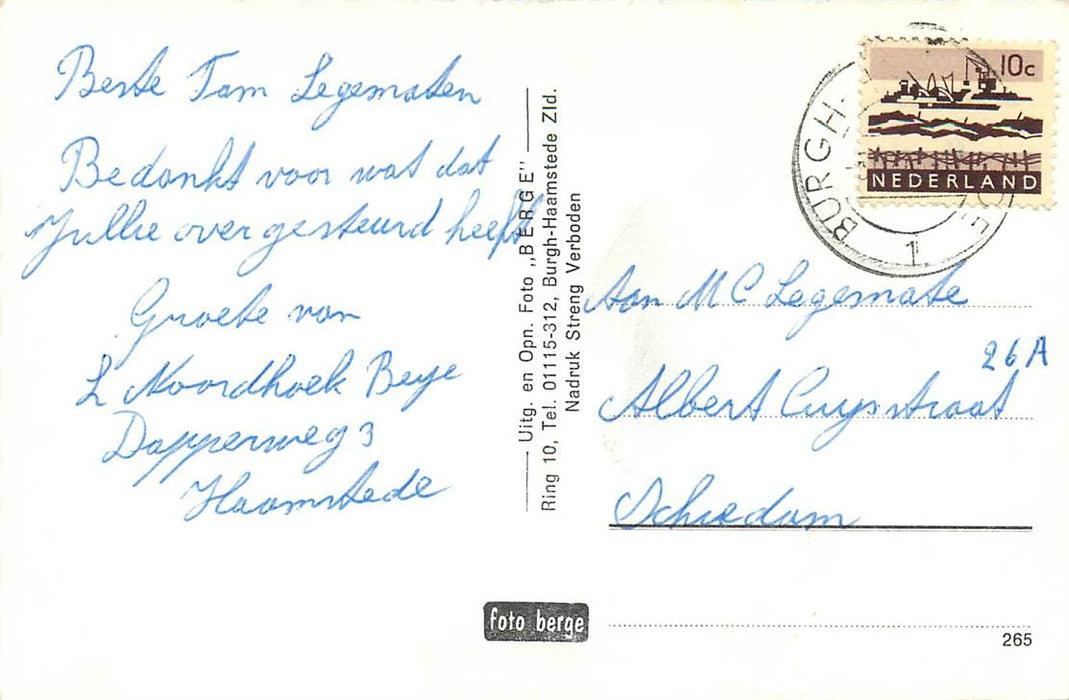 Beste Fam Legematen
Bedankt voor wat dat
Jullie over gesteurd heeft
Groete van
L Noordhoek Beije
Dapperweg 3
Haamstede
Uitg. en Opn. Foto „BERGE"
Ring 10, Tel. 01115-312, Burgh-Haamstede Zld.
Nadruk Streng Verboden
foto berge
10c
NEDERLAND
BURGH-
1
Aan M C Legemate
26 A
Albert Cuypstraat
Schiedam
265